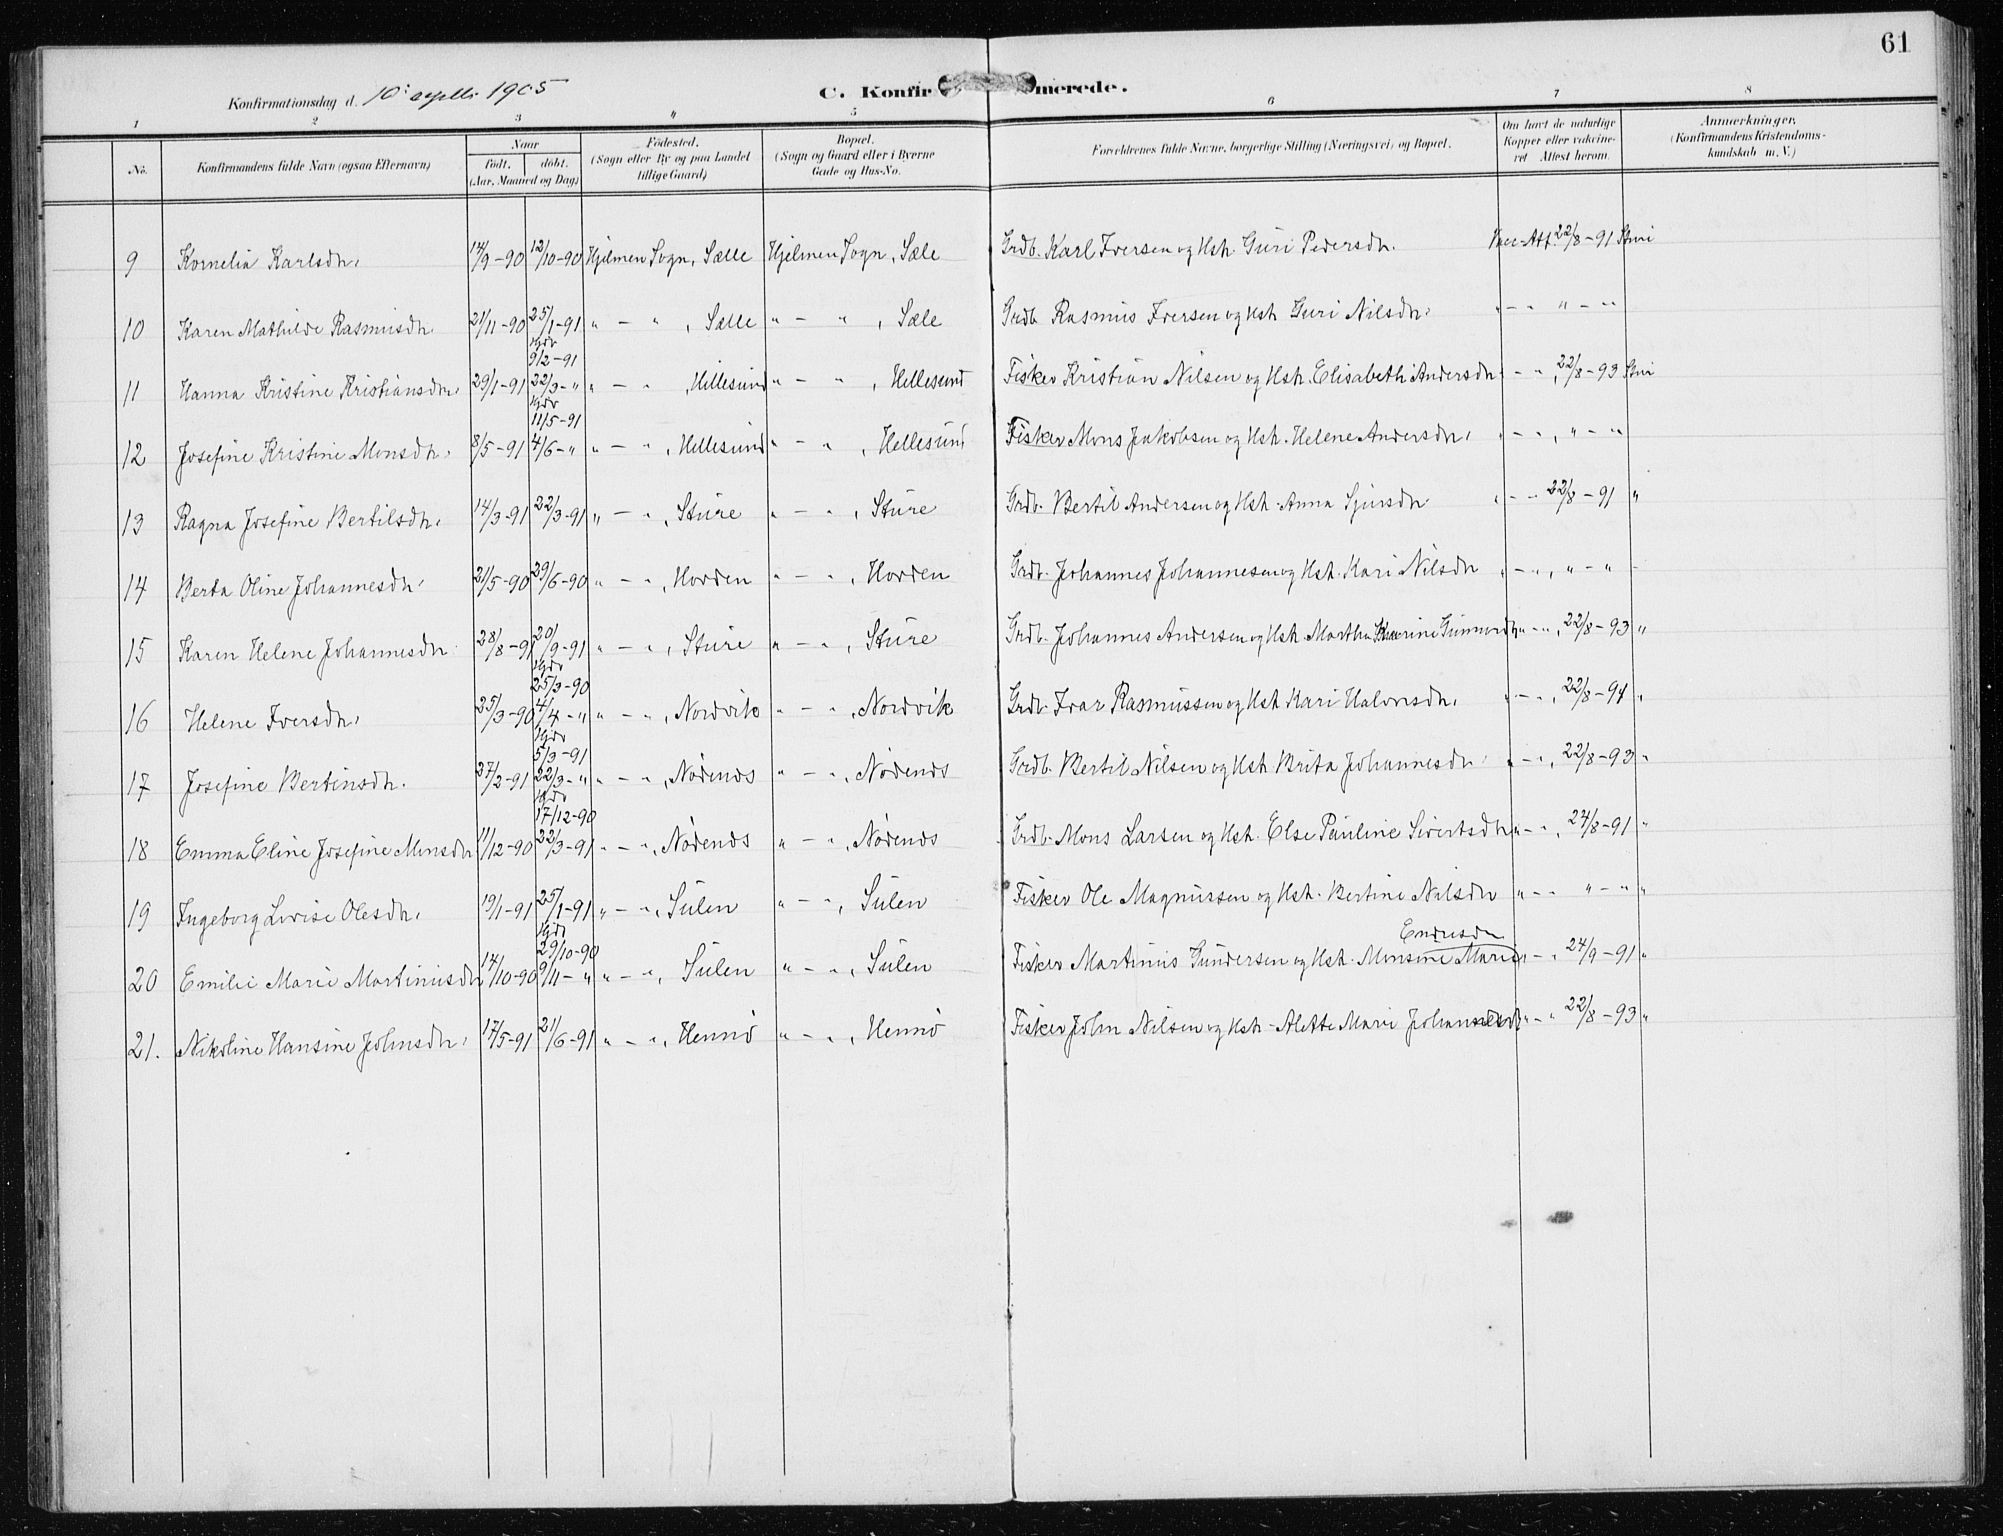 61
Konfirmationsdag d. 10' 1905 C. Konfirmerede.
1 2 3 " 5 6 7 8
No. Konfirmandens fulde Navn (ogsaa Efternavn) Naar født. døbt. (Aar, Maaned og Dag) Fødested. (Sogn eller By og paa Landet tillige Gaard) Bopæl. (Sogn og Gaard eller i Byerne Gade og Hus-No. Forældrenes fulde Navne, borgerlige Stilling (Næringsvei) og Bopæl. Om havt de naturlige Kopper eller vakcineret Attest herom. Anmærkninger. (Konfirmandens Kristendomskundskab m. V.)
9 Kornelia Karlsdtr. 14/9-90 12/10-90 Hjelmen Sogn, Sælle Hjelmen Sogn, Sæle Grdb. Karl Iversen og Hst. Guri Pedersdtr. Vac-Att. 22/8-91 Sturi
10 Karen Mathilde Rasmusdtr. 21/11-90 25/1-91 " - " , Sælle " - " , Sæle Grdb. Rasmus Iversen og Hst. Guri Nilsdtr. " - " " - "
11 Hanna Kristine Kristiansdtr. 29/1-91 Hjdr 9/2-91 22/3-" " - " , Hillesund " - " , Hellesund Fisker Kristian Nilsen og Hst. Elisabeth Andersdtr. " - " , 22/8-93 Sturi
12 Josefine Kristine Monsdtr. 8/5-91 Hjdr 11/5-91 4/6-" " - " , Hellesund " - " , Hellesund Fisker Mons Jakobsen og Hst. Helene Andersdtr. " - " , " - "
13 Ragna Josefine Bertilsdtr. 14/3-91 22/3-91 " - " , Sture " - " , Sture Grdb. Bertil Andersen og Hst. Anna Sjursdtr " - " 22/8-91 "
14 Berta Oline Johannesdtr. 21/5-90 29/6-90 " - " , Horden " - " , Horden Grdb. Johannes Johannesen og Hst. Kari Nilsdtr " - " , " - "
15 Karen Helene Johannesdtr 28/8-91 20/9-91 " - " , Sture " - " , Sture Grdb. Johannes Andersen og Hst. Martha " - " , 22/8-93 "
16 Helene Iversdtr. 25/3-90 Hjdr 25/3-90 4/4-" " - " , Nordvik " - " , Nordvik Grdb. Ivar Rasmussen og Hst. Kari Halvorsdtr. " - " , 22/8-94 "
17 Josefine Bertinsdtr. 27/2-91 Hjdr 5/3-91 22/3-" " - " , Nødenes " - " , Nødenes Grdb. Bertil Nilsen og Hst. Brita Johannesdtr " - " , 22/8-93 "
18 Emma Eline Josefine Monsdtr 11/12-90 Hjdr 17/12-90 22/3-91 " - " , Nødenes " - " , Nødenes Grdb. Mons Larsen og Hst. Else Pauline Sivertsdtr " - " , 24/8-91 "
19 Ingeborg Lovise Olesdtr. 19/1-91 25/1-91 " - " , Sulen " - " , Sulen Fisker Ole Magnussen og Hst. Bertine Nilsdtr " - " " - " "
20 Emilie Marie Martinusdtr 14/10-90 Hjdr 29/10-90 9/11-" " - " , Sulen " - " , Sulen Fisker Martinus Gundersen og Hst. Monsine Marie Endresdtr " - " 24/9-91 "
21. Nikoline Hansine Johnsdtr. 17/5-91 21/6-91 " - " , Hennø " - " , Hennø Fisker John Nilsen og Hst. Alette Marie Johannesdtr " - " 22/8-93 "